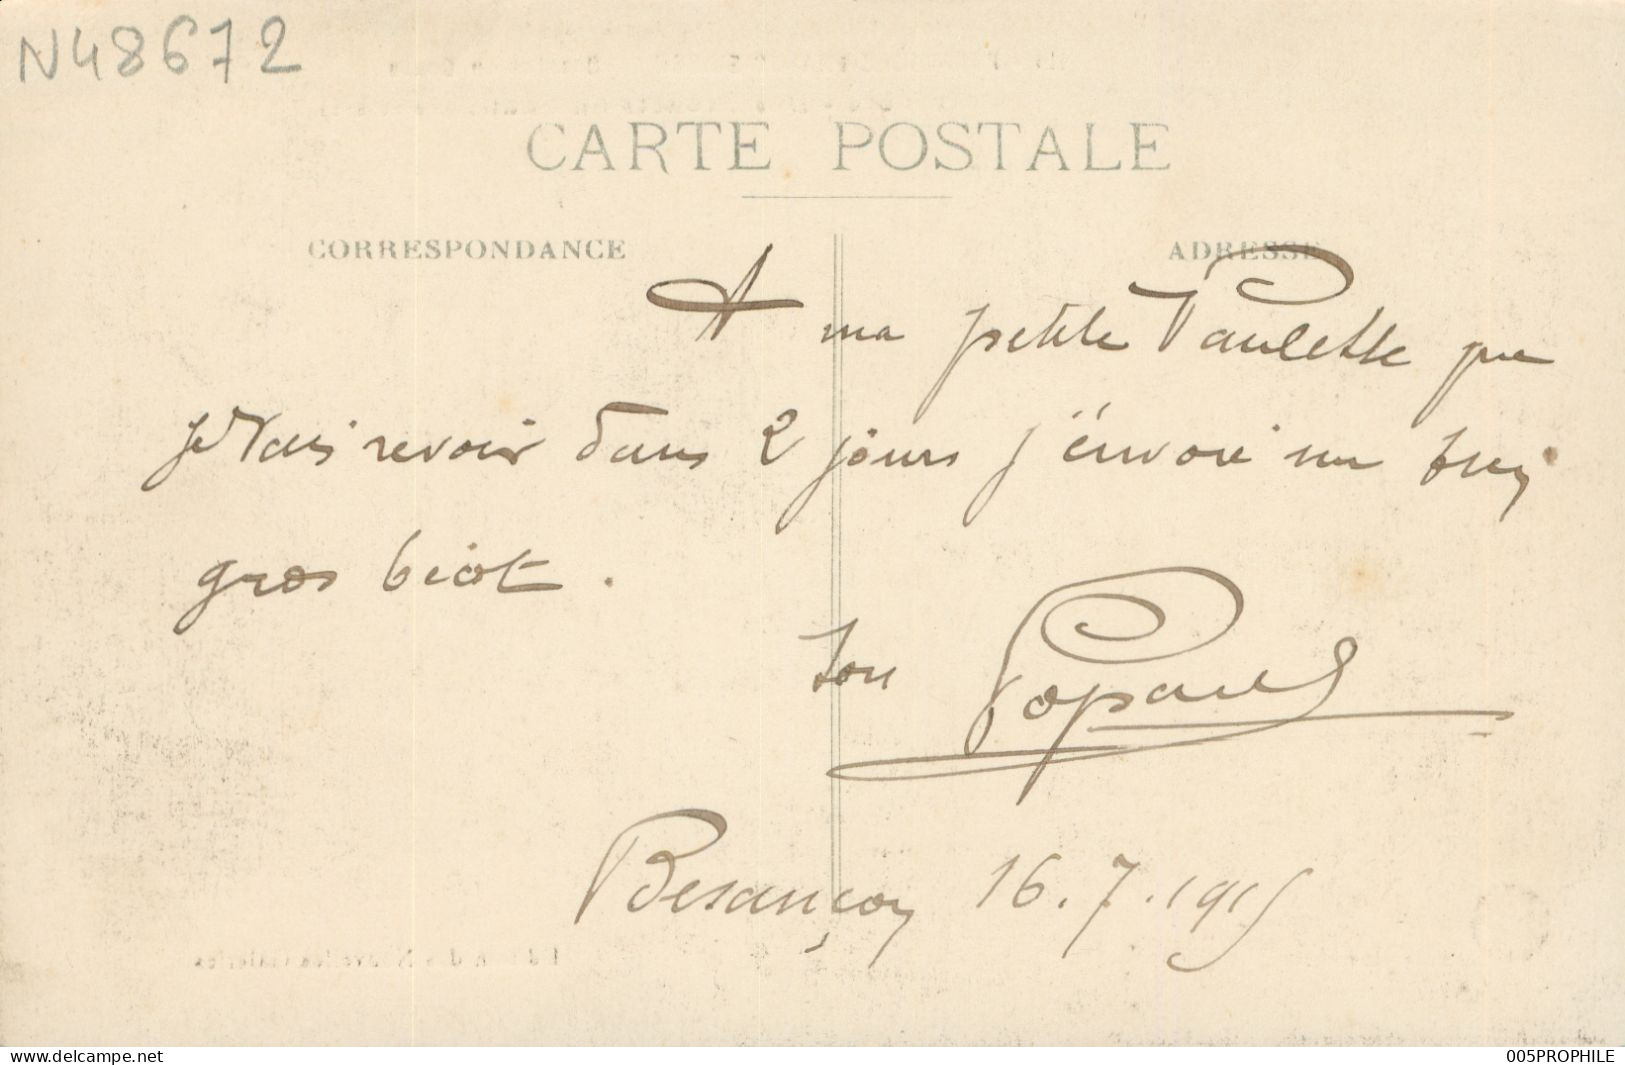 N48672
CARTE POSTALE
CORRESPONDANCE
ADRESSE
A ma petite Paulette que
je vais revoir dans 2 jours j'envoie un bien
gros beot.
ton Popaul
Besançon 16.7.1915
www.delcampe.net
005PROPHILE